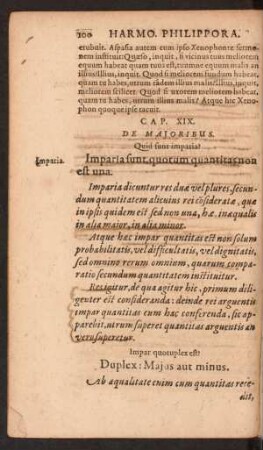 100 HARMO. PHILIPPORA.
erubuit. Aspasia autem cum ipso Xenophonte sermo-
nem instituit: Quæso, inquit, si vicinus tuus meliorem
equum habeat quam tuus est, tuumne equum malis an
illius? Illius, inquit. Quod si meliorem fundum habeat,
quam tu habes, utrum tandem illius malis? Illius, inquit,
meliorem scilicet. Quod si uxorem meliorem habeat,
quam tu habes, utrum illius malis? Atque hic Xeno-
phon quoque ipse tacuit.
CAP. XIX.
DE MAJORIBUS.
Quid sunt imparia?
Imparia.
Imparia sunt, quorum quantitas non
est una.
Imparia dicuntur res duæ vel plures, secun-
dum quantitatem alicuius rei cōsideratæ, quæ
in ipsis quidem est sed non una, hæ. inæqualis
in alia maior, in alia minor.
Atque hæc impar quantitas est non solum
probabilitatis, vel difficultatis, vel dignitatis,
sed omnino rerum omnium, quarum compa-
ratio secundum quantitatem instituitur.
Res igitur, de qua agitur hic, primum dili-
genter est consideranda: deinde rei arguentis
impar quantitas cum hac conferenda, sic ap-
parebit, utrum superet quantitas arguentis an
verò superetur.
Impar quotuplex est?
Duplex: Majus aut minus.
Ab æqualitate enim cum quantitas reie-